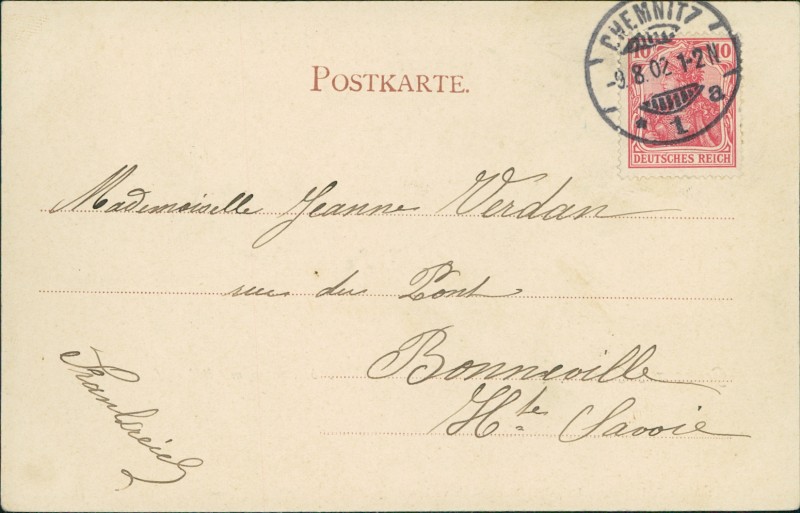 POSTKARTE.
CHEMNITZ
-9.8.02 1-2N
* 1 a
10 10
DEUTSCHES REICH
Mademoiselle Jeanne Verdan
rue du Pont
Bonneville
Hte Savoie
Frankreich